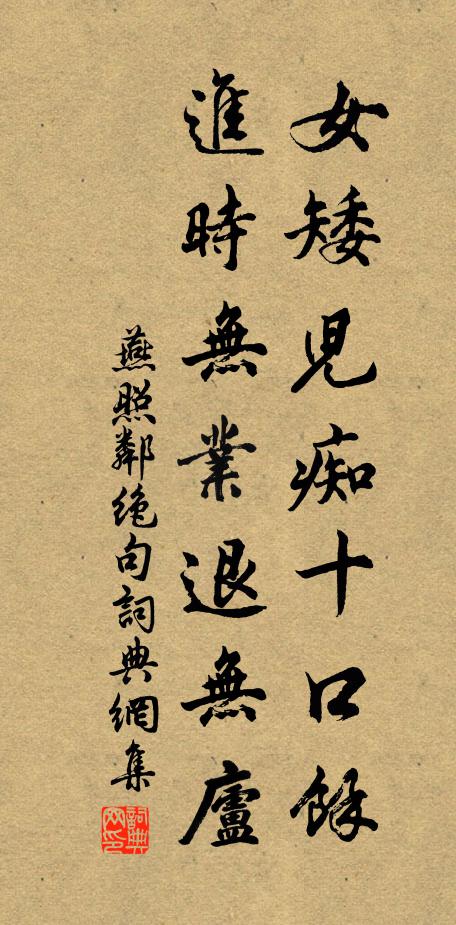 女矮児痴十口餘
進時無業退無廬
燕照鄰绝句詞典網集
詞典网印